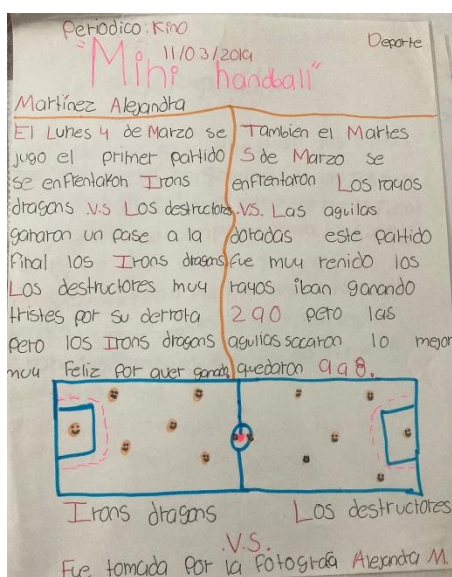 Periodico: Kino
Deporte
11/03/2019
"Mini handball"
Martínez Alejandra
El Lunes 4 de Marzo se
jugo el primer partido
se enfrentaron Irons
dragons V.S Los destructores
ganaron un pase a la
Final los Irons dragons
Los destructores muy
tristes por su derrota
pero los Irons dragons
muy Feliz por aver ganado
Tambien el Martes
5 de Marzo se
enfrentaron Los rayos
.VS. Las aguilas
doradas este partido
fue muy renido los
rayos iban ganando
2 a 0 pero las
aguilas sacaron lo mejor
quedaron 9 a 8.
Irons dragons
Los destructores
.V.S.
Fue tomada por la Fotografía Alejandra M.